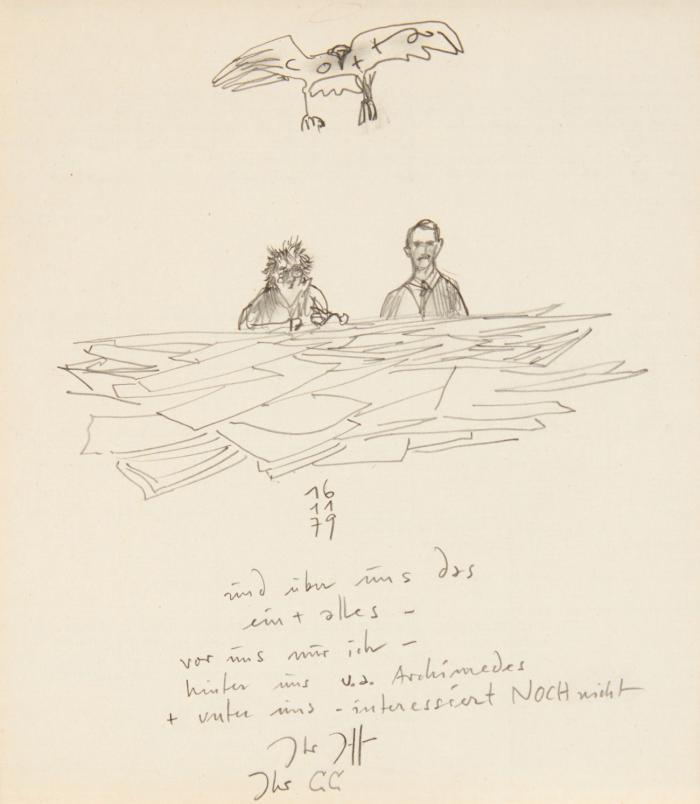 16
11
79
und über uns das
ein + alles –
vor uns nur ich –
hinter uns u.a. Archimedes
+ unter uns – interessiert NOCH nicht
Ihr
Ihr GG